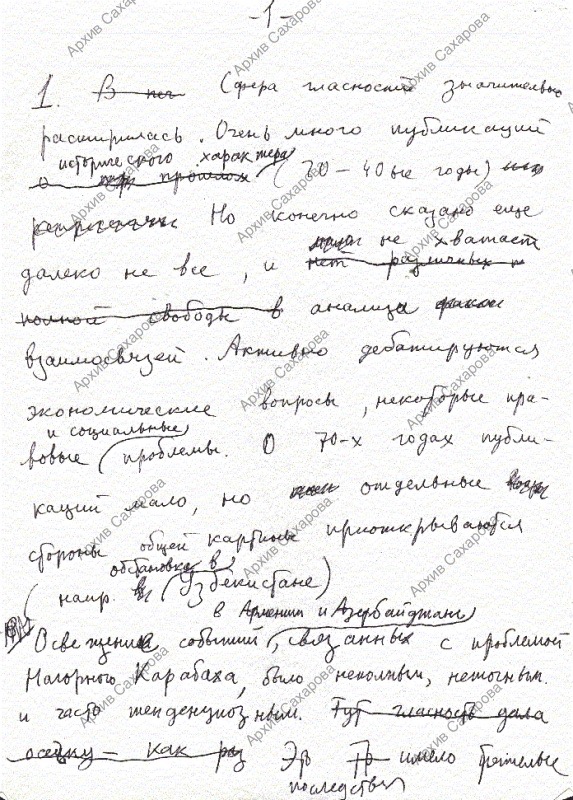 -1-
1. В Сфера гласности значительно
расширилась. Очень много публикаций
исторического характера
о прошлом (20-40ые годы)
репрессиях Но конечно сказано еще
не хватает
далеко не все, и нет различных
полной свободы в анализа
взаимосвязей. Активно дебатируются
экономические вопросы, некоторые пра-
и социальные
вовые проблемы. О 70-х годах публи-
каций мало, но отдельные
стороны общей картины приоткрываются
обстановка в
(напр. в Узбекистане)
в Армении и Азербайджане
Освещение событий, связанных с проблемой
Нагорного Карабаха, было неполным, неточным.
и часто тенденциозным. Тут гласность дала
осечку - как раз Это имело тяжелые
последствия
Архив Сахарова